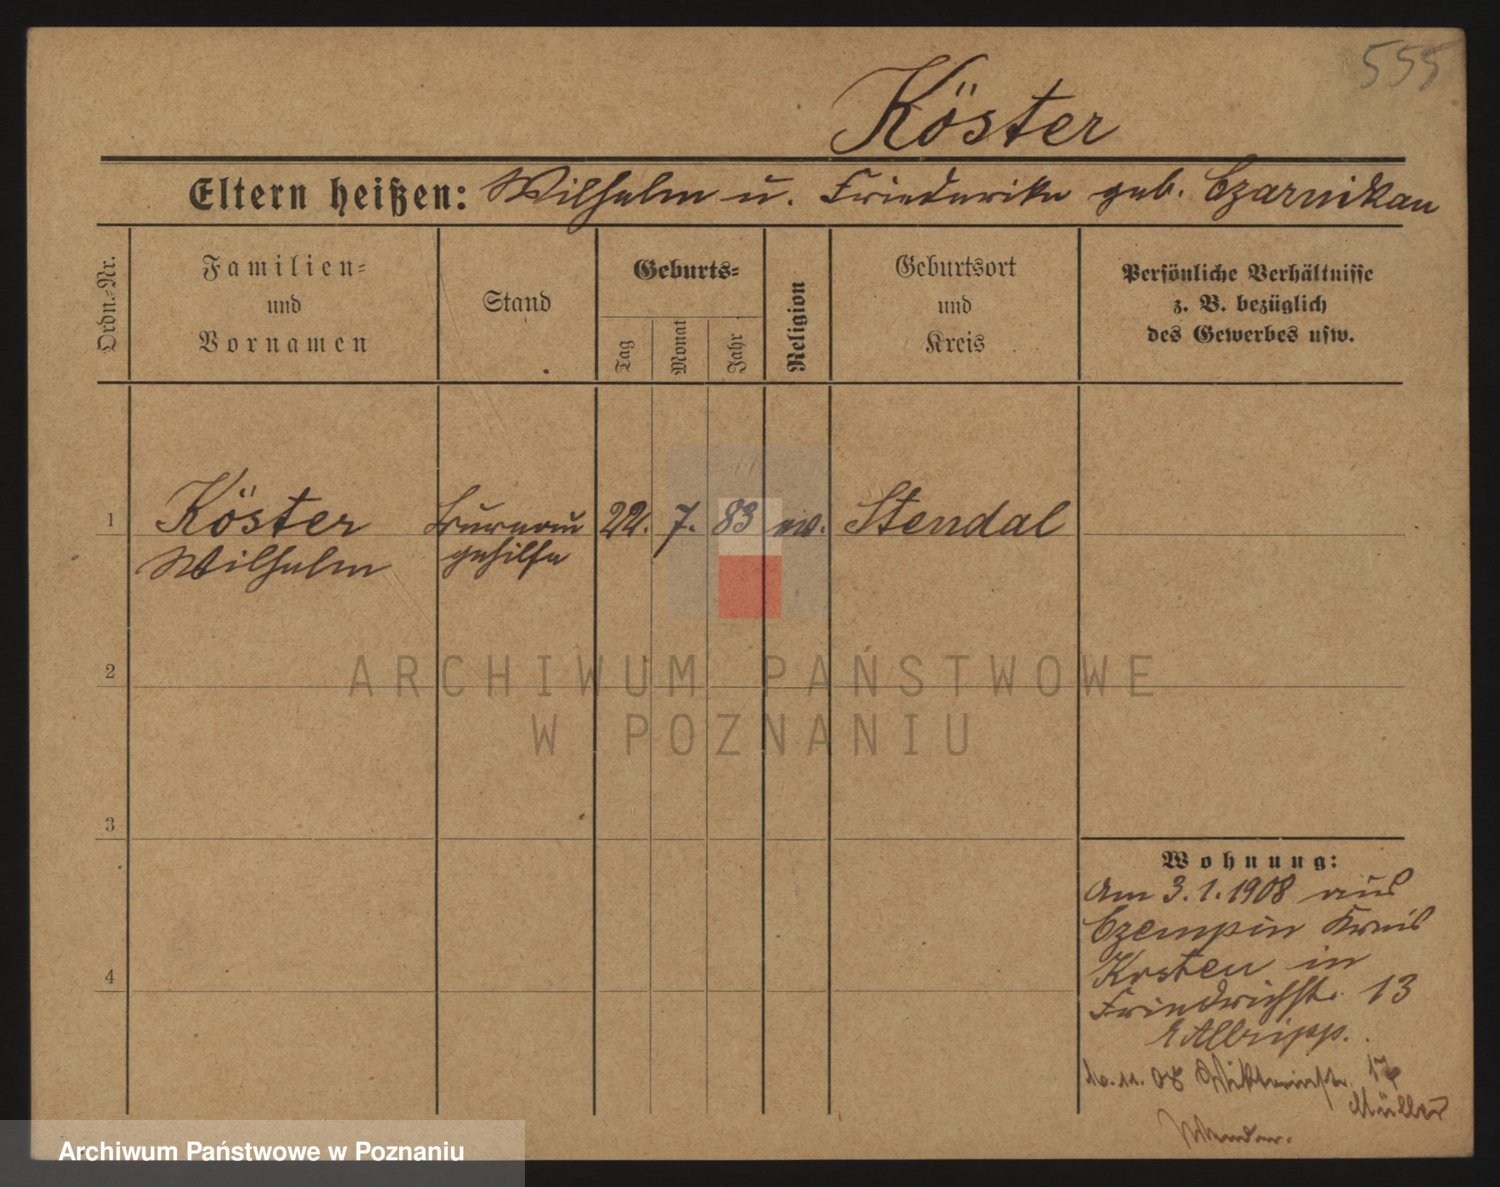 555
Köster
Eltern heißen: Wilhelm u. Friederike geb. Czarnikau
Ordn.-Nr.
Familien-
und
Vornamen
Stand
Geburts-
Tag
Monat
Jahr
Religion
Geburtsort
und
Kreis
Persönliche Verhältnisse
z. B. bezüglich
des Gewerbes usw.
1
Köster
Wilhelm
Bureau
gehilfe
22. 7. 83 ev. Stendal
2
3
4
ARCHIWUM PAŃSTWOWE
W POZNANIU
Wohnung:
Am 3.1.1908 aus
Czempin Kreis
Kosten in
Friedrichstr. 13
10.11.08 17
Müller
Archiwum Państwowe w Poznaniu